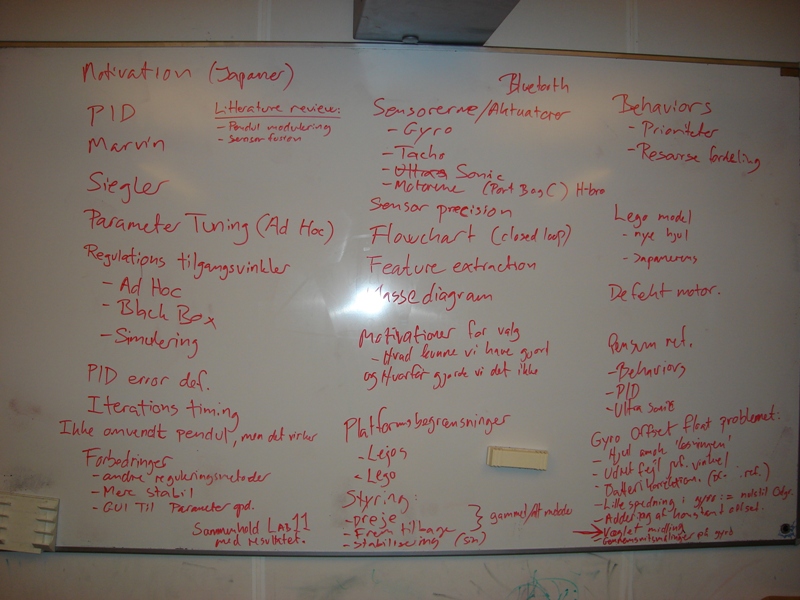 Motivation (Japaner)
PID
Marvin
Litterature review:
- Pendul modulering
- Sensor fusion
Siegler
Parameter Tuning (Ad Hoc)
Regulations tilgangsvinkler
- Ad Hoc
- Black Box
- Simulering
PID error def.
Iterations timing
Ikke omvendt pendul, men det virker
Forbedringer
- andre reguleringsmetoder
- Mere stabil
- GUI Til Parameter opd.
Sammenhold LAB 11
med resultatet.
Bluetooth
Sensorerne/Aktuatorer
- Gyro
- Tacho
- Ultra Sonic
- Motorerne (Port B og C) H-bro
Sensor precision
Flowchart (closed loop)
Feature extraction
Klassediagram
Motivationer for valg
- Hvad kunne vi have gjort
og Hvorfor gjorde vi det ikke
Platformsbegrænsninger
- Lejos
- Lego
Styring:
- Dreje
- Frem tilbage
- Stabilisering (sin)
} gammel/Alt metoder
Behaviors
- Prioriteter
- Resourse fordeling
Lego model
- nye hjul
- Japanerens
Defekt motor.
Pensum ref.
- Behaviors
- PID
- Ultra Sonic
Gyro Offset float problemet:
- Hjul amok 'løsningen'
- Udnyt fejl ref. vinkel
- Batteri
- Lille spedning : gyro := notstil Odgr.
- Addering af konstant offset.
Vægtet midling
- Gennemsnitsmålinger på gyro